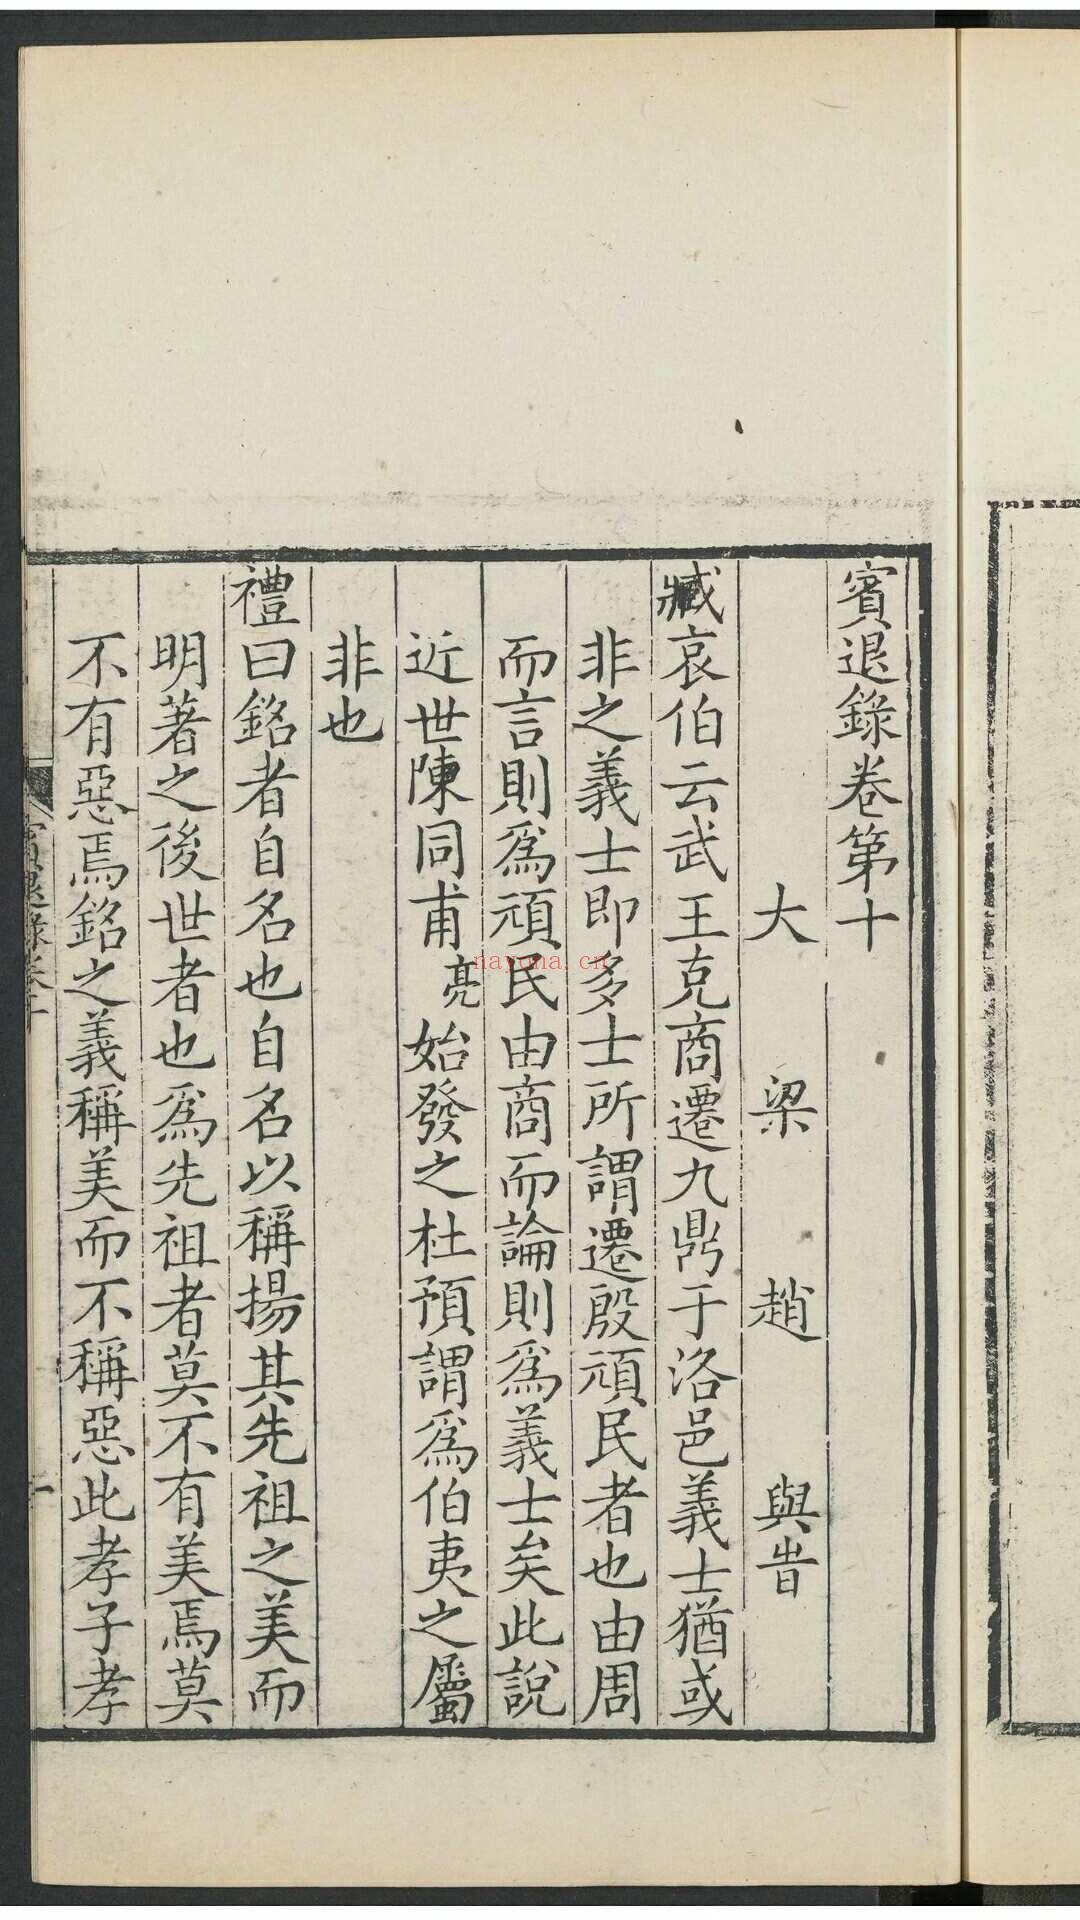 賓退錄卷第十
大梁趙與旹
臧哀伯云武王克商遷九鼎于洛邑義士猶或
非之義士即多士所謂遷殷頑民者也由周
而言則爲頑民由商而論則爲義士矣此說
近世陳同甫亮始發之杜預謂爲伯夷之屬
非也
禮曰銘者自名也自名以稱揚其先祖之美而
明著之後世者也爲先祖者莫不有美焉莫
不有惡焉銘之義稱美而不稱惡此孝子孝
賓退錄卷十
一
nayona.cn